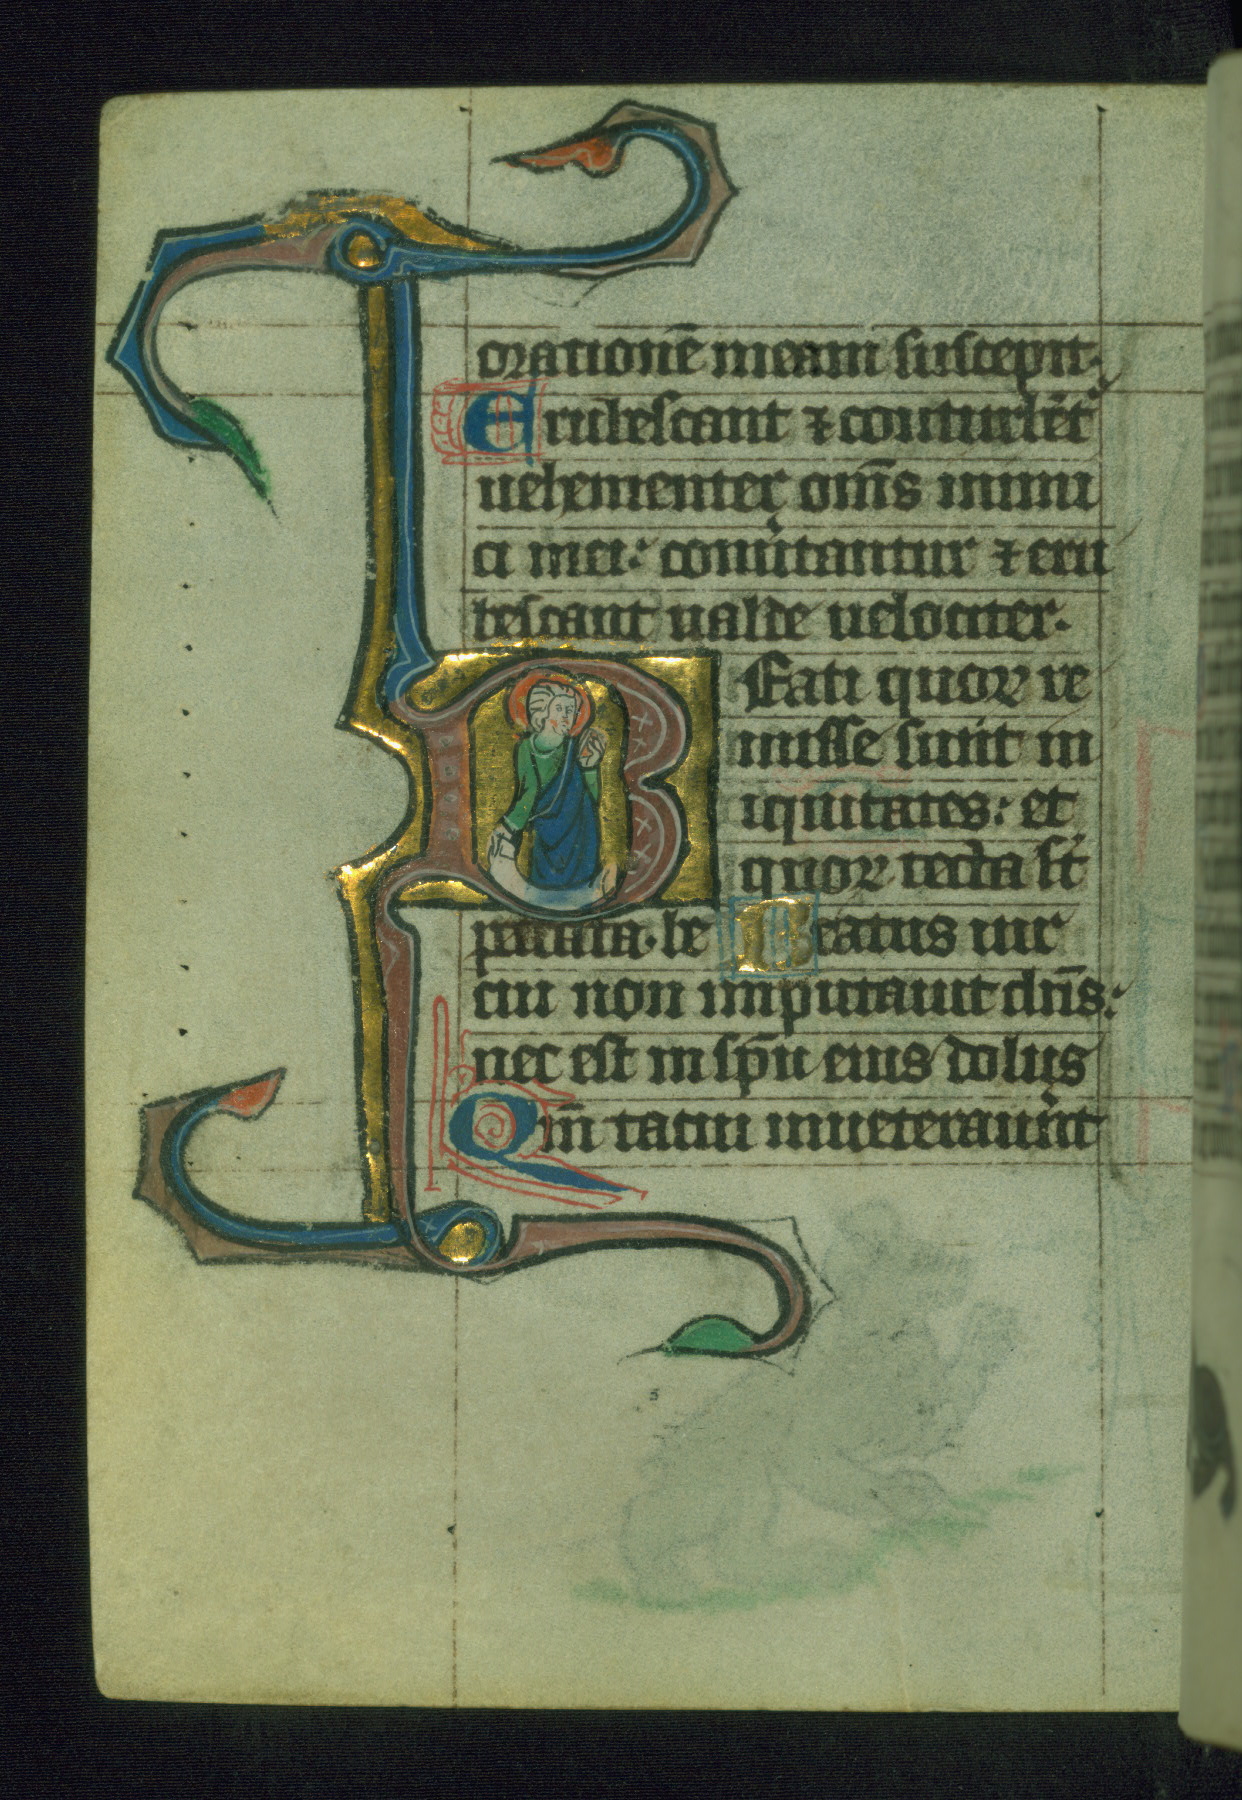 orationē meam suscepit.
Erubescant ⁊ conturbēt
uehementer om̄s inimi
ci mei: conũtantur ⁊ eru
bescant ualde uelociter.
Beati quoꝝ re
misse sunt in
iquitates: et
quoꝝ tecta sт̄
peccata. be Beatus uir
cui non imputauit dn̄s:
nec est in sp̄u eius dolus
Qm̄ tacui inueterauer̄t